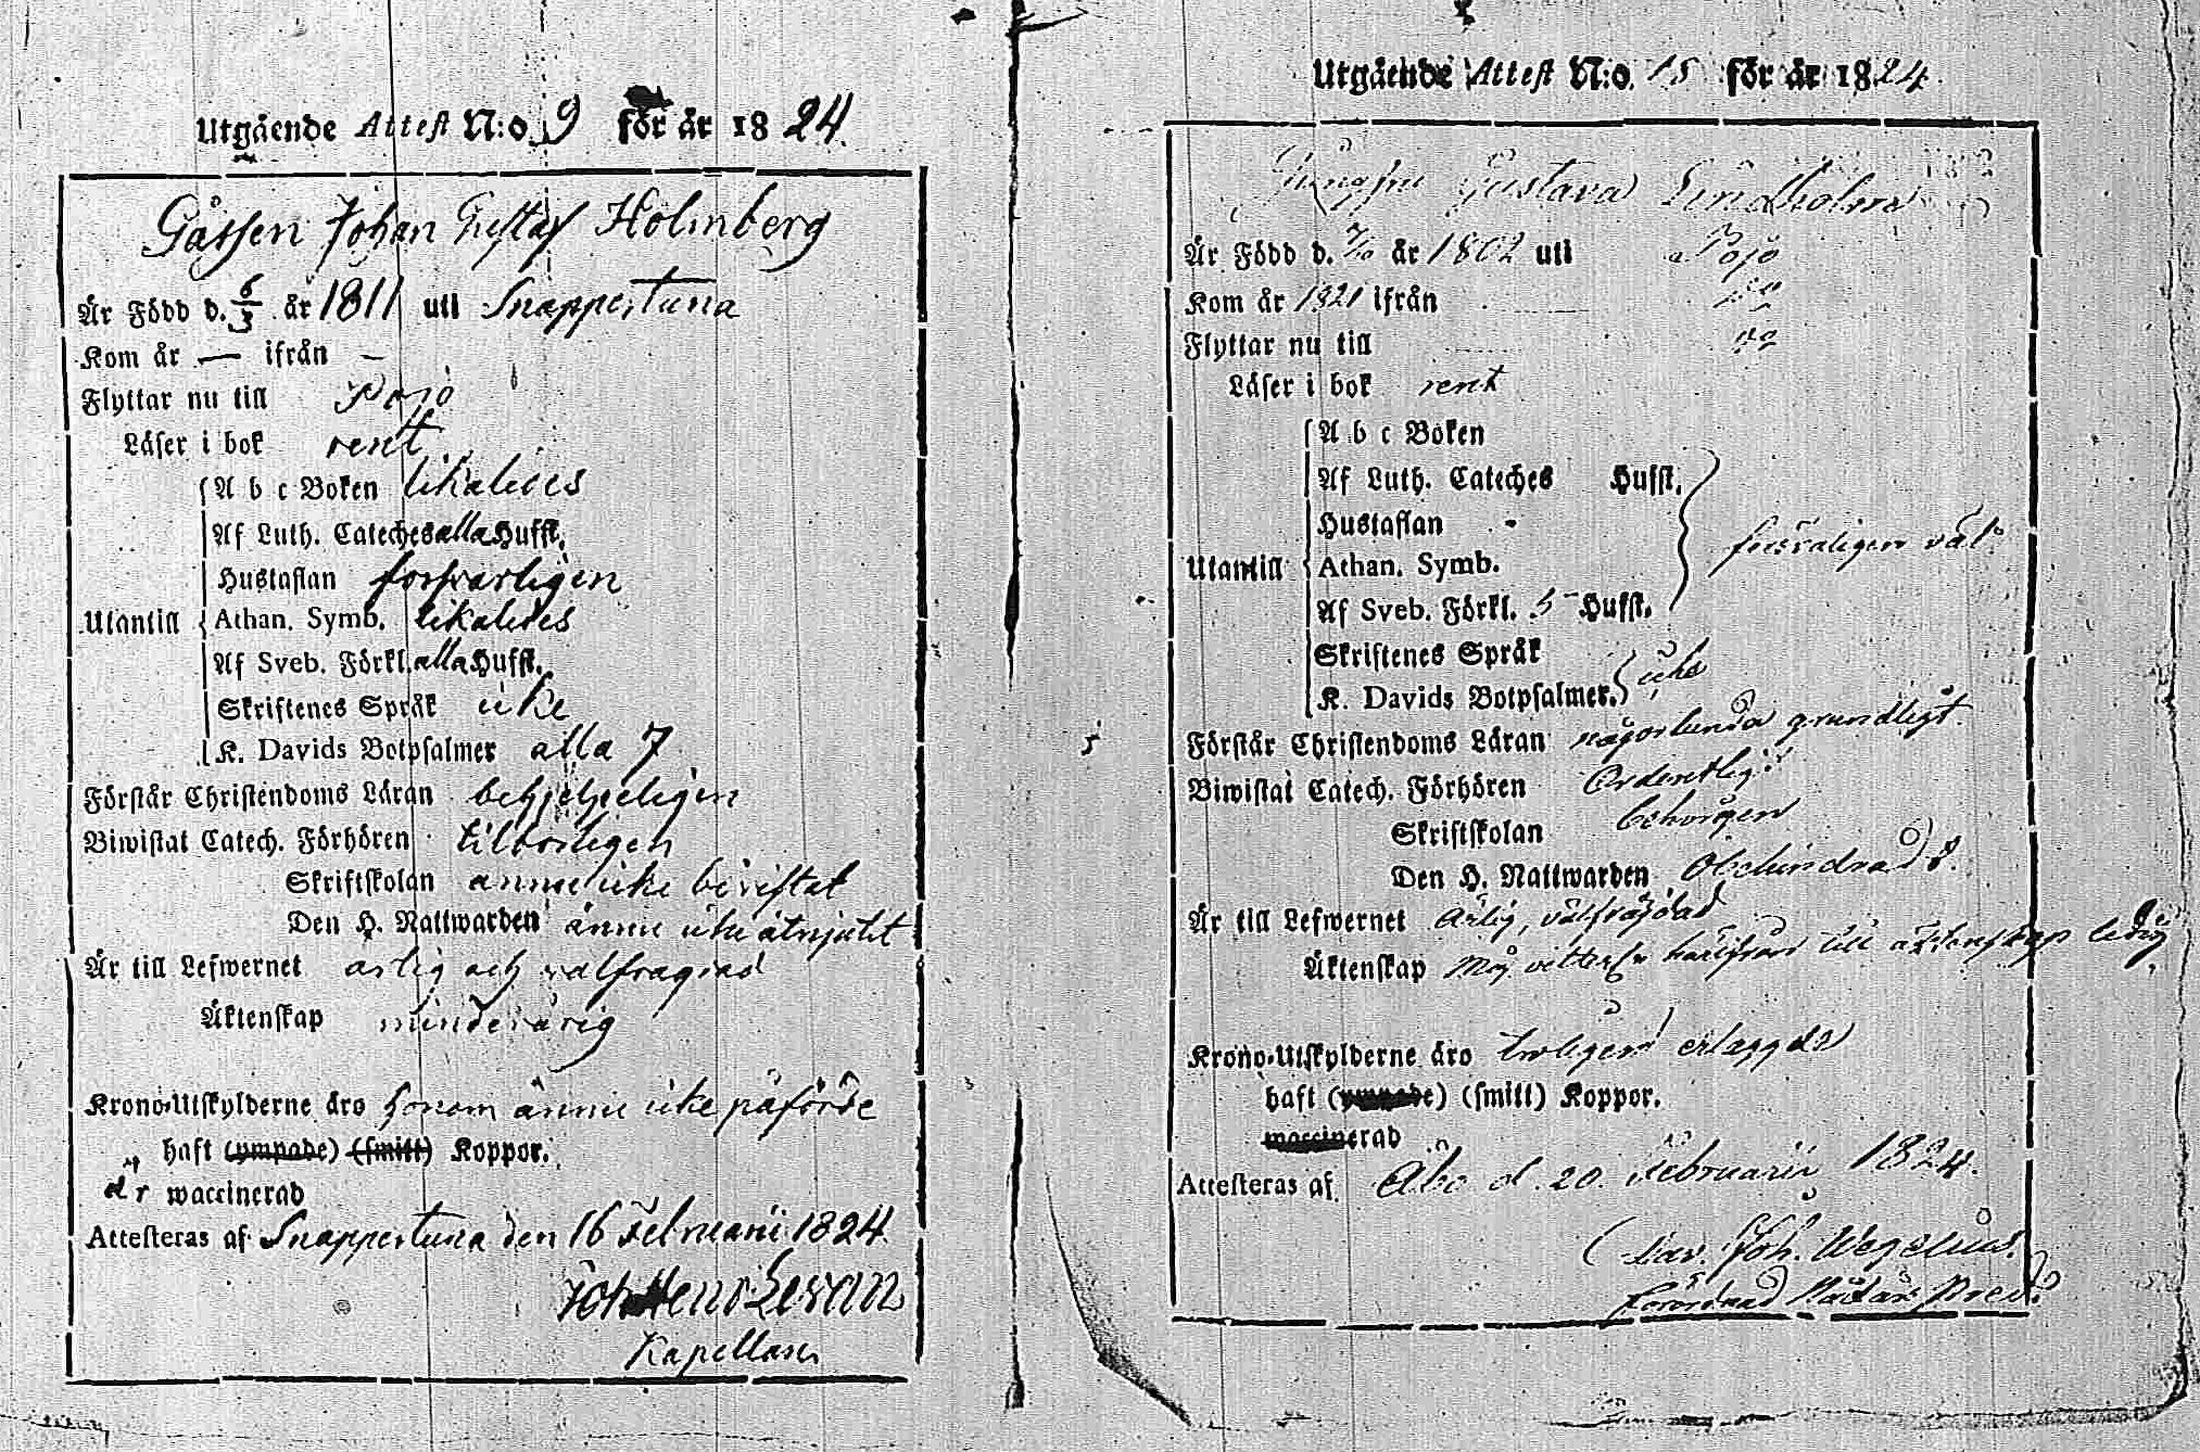 Utgående Attest N:o 9 för år 1824
Gåssen Johan Gustaf Holmberg
Är Född d. 6/3 år 1811 uti Snappertuna
Kom år — ifrån —
Flyttar nu till Pojo
Läser i bok rent
A b c Boken likaledes
Af Luth. Cateches alla Hufst.
Hustaflan forsvarligen
Utantill Athan. Symb. likaledes
Af Sveb. Förkl. alla Hufst.
Skriftenes Språk icke
K. Davids Botpsalmer alla 7
Förstår Christendoms Läran
Biwistat Catech. Förhören tilbörligen
Skriftskolan ännu icke bevistat
Den H. Nattwarden ännu icke åtnjutit
Är till Lefwernet ärlig och välfrägdad
Äktenskap minderårig
Krono-Utskylderne äro honom ännu icke påförde
haft (ympade) (smitt) Koppor.
är waccinerad
Attesteras af Snappertuna den 16 Februarii 1824
Joh Henr Levan
Kapellan
Utgående Attest N:o 15 för år 1824
Gustava Lindholm
Är Född d. 7/10 år 1802 uti Pojo
Kom år 1821 ifrån
Flyttar nu till
Läser i bok rent
A b c Boken
Af Luth. Cateches Hufst.
Hustaflan
försvarligen väl
Utantill Athan. Symb.
Af Sveb. Förkl. 5 Hufst.
Skriftenes Språk
icke
K. Davids Botpsalmer.
Förstår Christendoms Läran någorlunda grundligt
Biwistat Catech. Förhören Ordentlig:
Skriftskolan behörigen
Den H. Nattwarden Obehindrad
Är till Lefwernet ärlig, välfräjdad
Äktenskap Mig vitterl. härifrån till äktenskap ledig
Krono-Utskylderne äro erlaggde
haft (ympade) (smitt) Koppor.
waccinerad
Attesteras af Åbo d. 20. Februarii 1824.
Dav. Joh. Wegelius.
förordnad